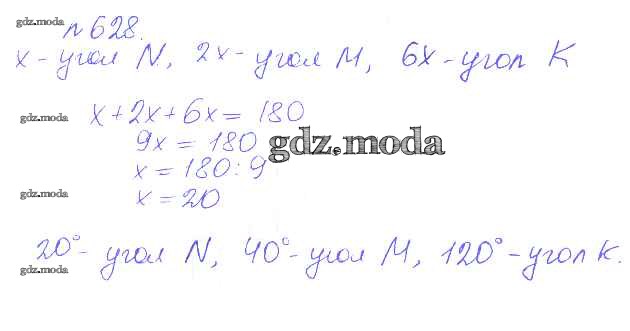 gdz.moda
№628.
x - угол N, 2x - угол M, 6x - угол K
gdz.moda
x + 2x + 6x = 180
9x = 180
gdz.moda
x = 180 : 9
gdz.moda
x = 20
20° - угол N, 40° - угол M, 120° - угол K.
gdz.moda